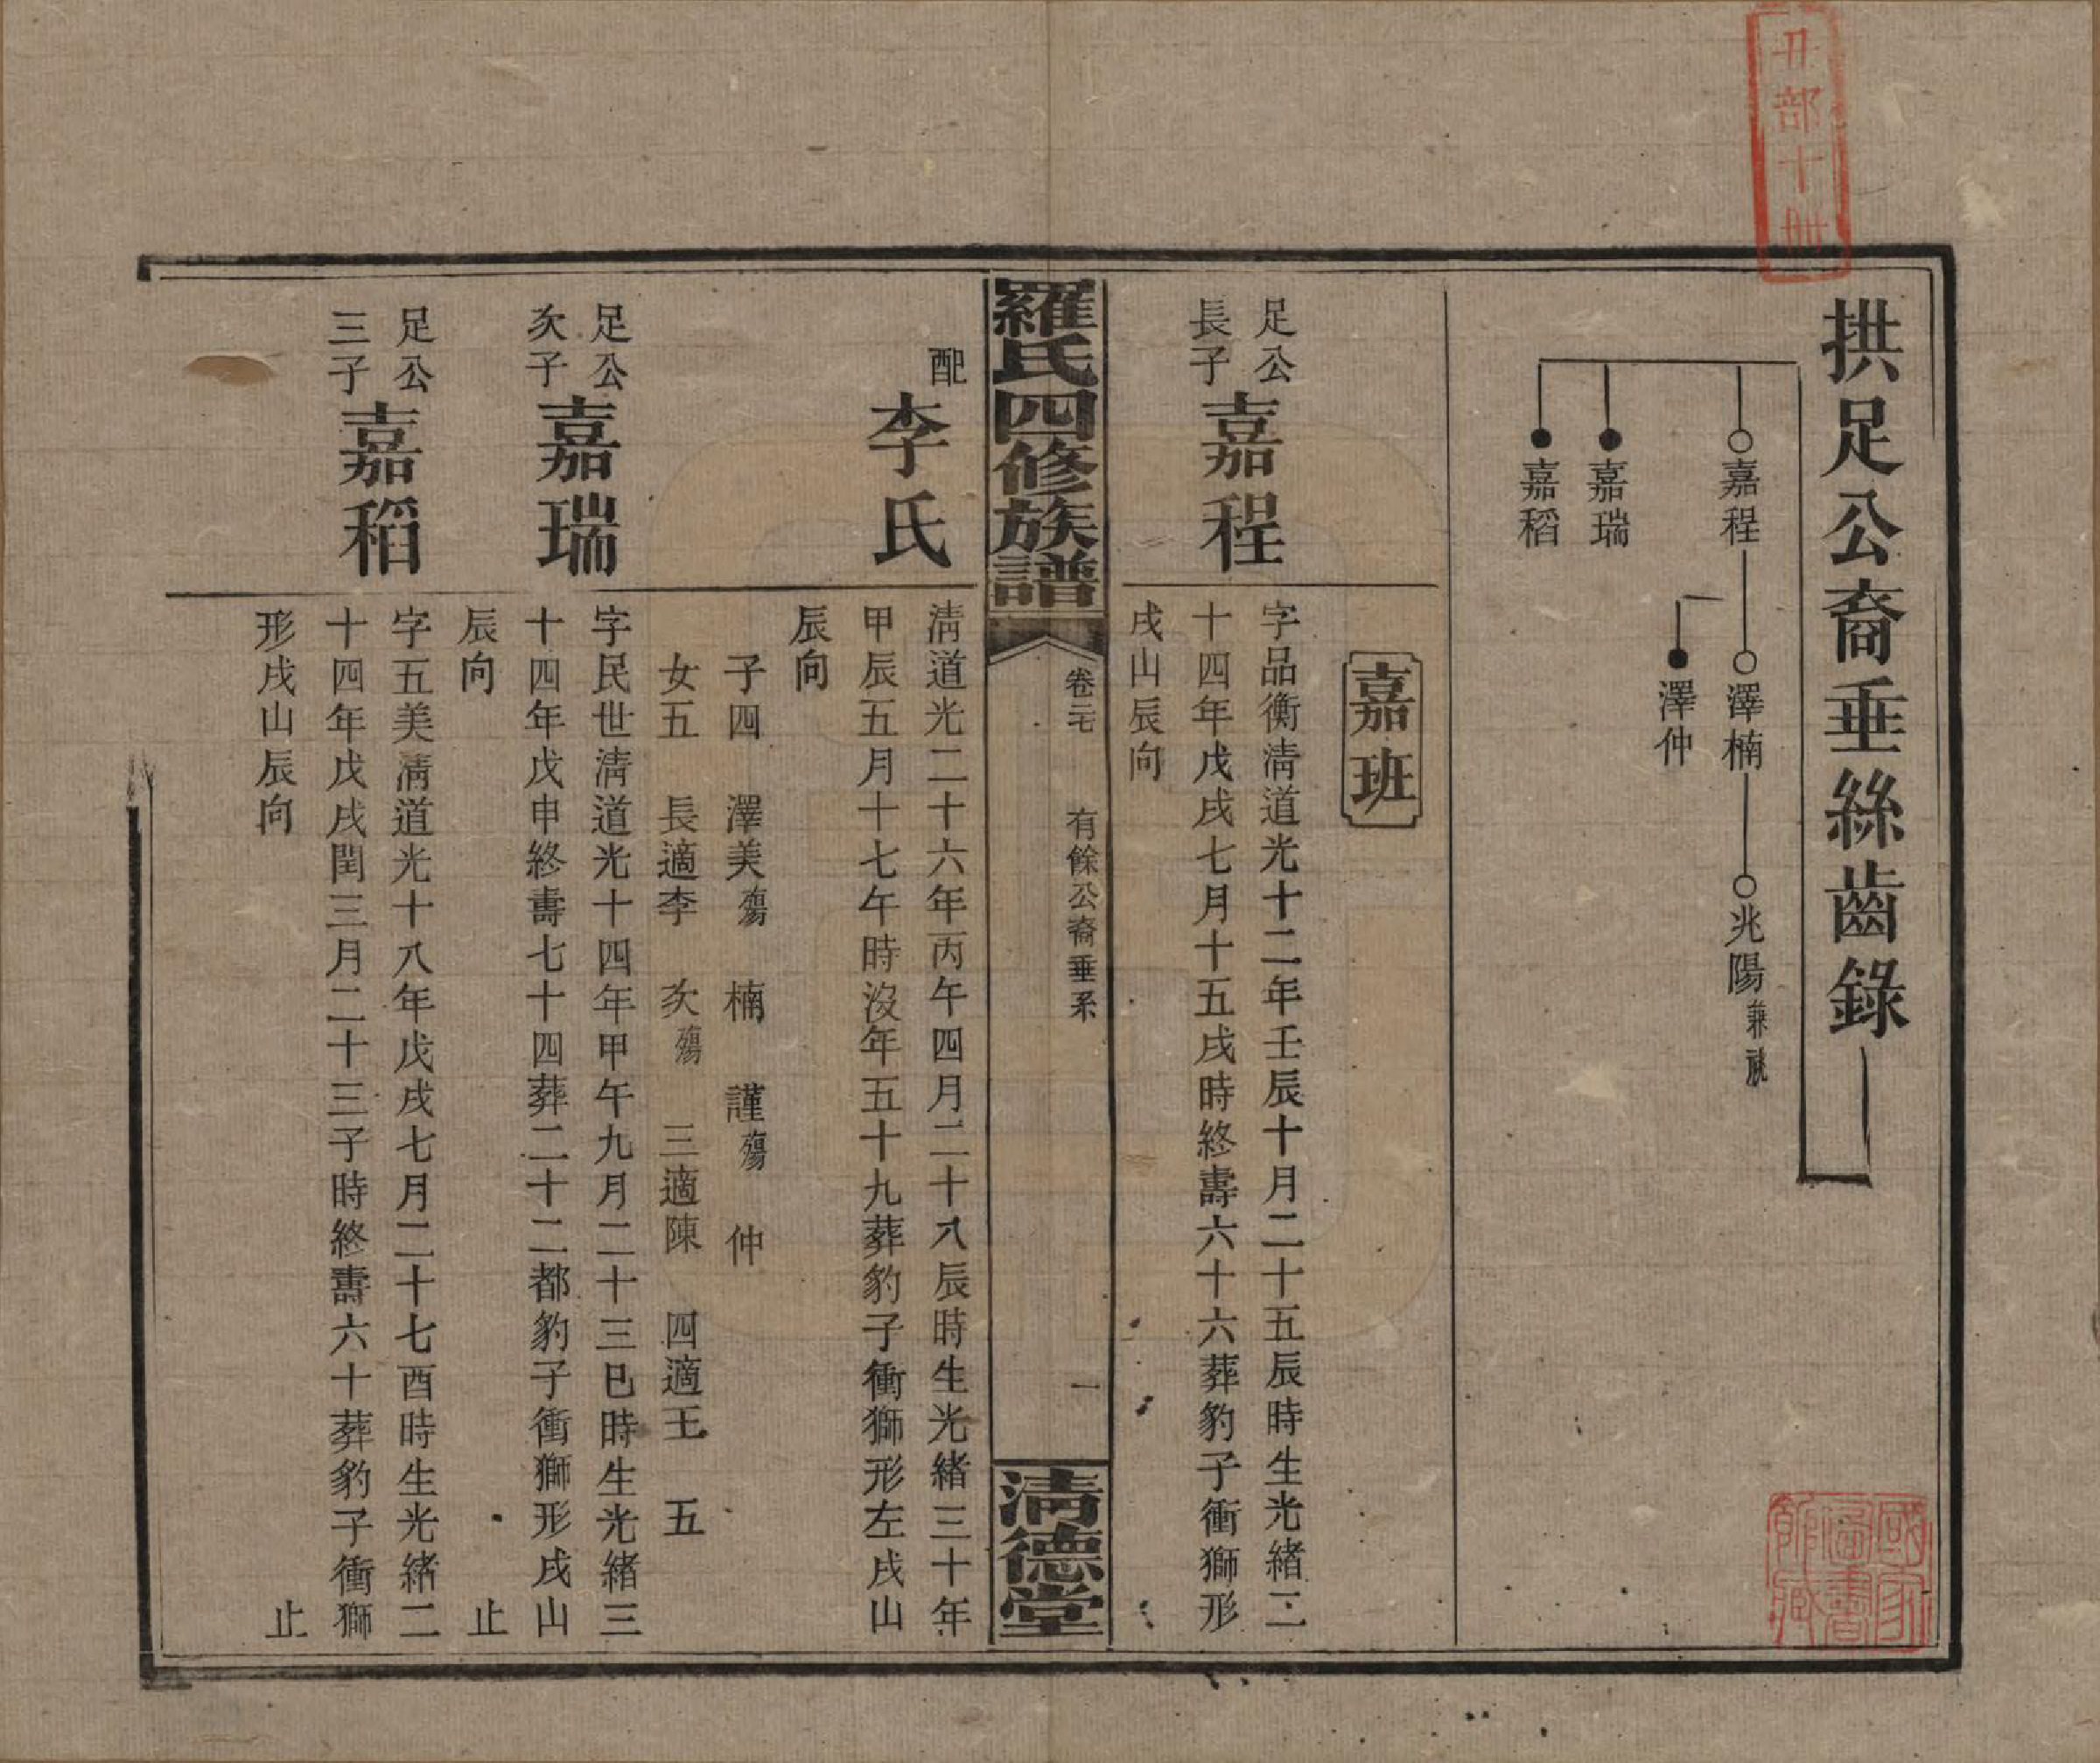 拱足公裔垂絲齒錄
嘉程
澤楠
兆陽兼祧
澤仲
嘉瑞
嘉稻
嘉班
足公
長子
嘉程
字品衡清道光十二年壬辰十月二十五辰時生光緒二
十四年戊戌七月十五戌時終壽六十六葬豹子衝獅形
戌山辰向
羅氏四修族譜
有餘公裔垂系
一
清德堂
配
李氏
清道光二十六年丙午四月二十八辰時生光緒三十年
甲辰五月十七午時沒年五十九葬豹子衝獅形左戌山
辰向
子四 澤美殤 楠 謹殤 仲
女五 長適李 次殤 三適陳 四適王 五
足公
次子
嘉瑞
字民世清道光十四年甲午九月二十三巳時生光緒三
十四年戊申終壽七十四葬二十二都豹子衝獅形戌山
辰向 止
足公
三子
嘉稻
字五美清道光十八年戊戌七月二十七酉時生光緒二
十四年戊戌閏三月二十三子時終壽六十葬豹子衝獅
形戌山辰向 止
國家
圖書
館藏